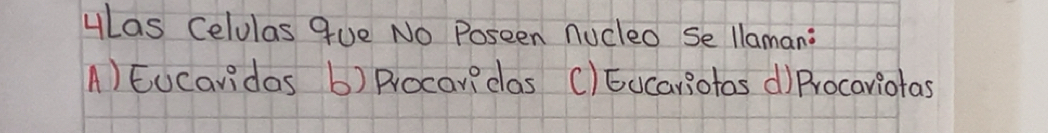 4Las Celulas que No Poseen nucleo Se llaman:
A) Eucaridas b) Procaridas C) Eucariotas d) Procariotas